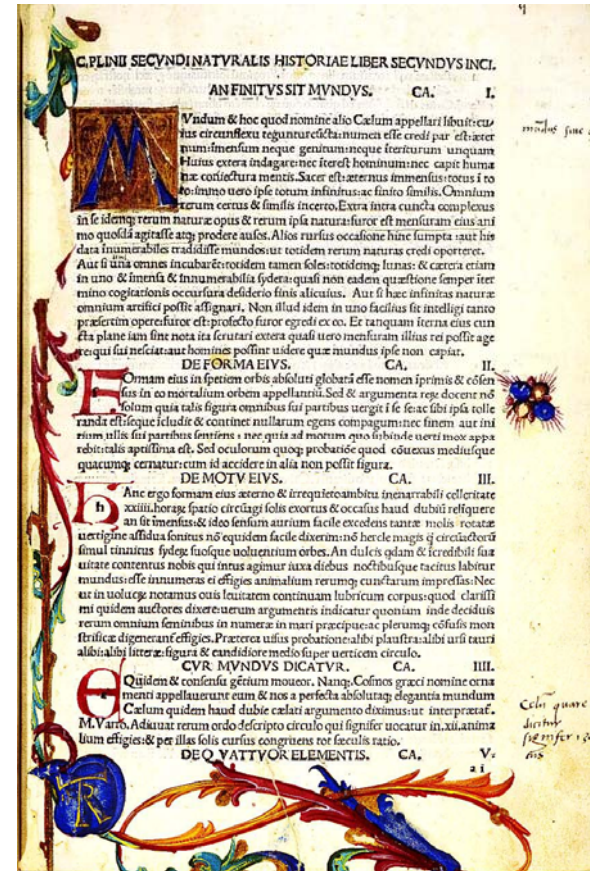 C. PLINII SECVNDI NATVRALIS HISTORIAE LIBER SECVNDVS INCI.
AN FINITVS SIT MVNDVS. CA. I.
MVndum & hoc quod nomine alio Cælum appellari libuit:cu-
ius circunflexu numen esse credi par est:æter
num:imensum neque genitum:neque iteriturum unquam
Huius extera indagare:nec iterest hominum:nec capit humā
næ coniectura mentis. Sacer est:æternus immensus:totus i to
to:immo uero ipse totum infinitus:ac finito similis. Omnium
rerum certus & similis incerto. Extra intra cuncta complexus
in se idemq; rerum naturæ opus & rerum ipsa natura:furor est mensuram eius ani
mo quosdā agitasse atq; prodere ausos. Alios rursus occasione hinc sumpta:aut his
data inumerabiles tradidisse mundos:ut totidem rerum naturas credi oporteret.
Aut si una omnes incubarēt:totidem tamen soles:totidemq; lunas: & cætera etiam
in uno & imensa & innumerabilia sydera:quasi non eadem quæstione semper iter
mino cogitationis occursura desiderio finis alicuius. Aut si hæc infinitas naturæ
omnium artifici possit assignari. Non illud idem in uno facilius sit intelligi tanto
præsertim opere:furor est:profecto furor egredi ex eo. Et tanquam iterna eius cun
cta plane iam sint nota ita scrutari extera quasi uero mensuram illius rei possit age
re:qui sui nesciat:aut homines possint uidere quæ mundus ipse non capiat.
DE FORMA EIVS. CA. II.
FOrmam eius in spetiem orbis absoluti globatā esse nomen iprimis & cōsen
sus in eo mortalium orbem appellantiū. Sed & argumenta docent nō
solum quia talis figura omnibus sui partibus uergit i se se:ac sibi ipsa tolle
randa est:seque icludit & continet nullarum egens compagum:nec finem aut ini
tium ullis sui partibus sentiens: nec quia ad motum quo subinde uerti mox appa
rebit:talis aptissima est. Sed oculorum quoq; probatiōe quod cōuexus mediusque
quacumq; cernatur:cum id accidere in alia non possit figura.
DE MOTV EIVS. CA. III.
h
HAnc ergo formam eius æterno & irrequieto ambitu inenarrabili celleritate
xxiiii. spatio circūagi solis exortus & occasus haud dubiū reliquere
an sit imensus:& ideo sensum aurium facile excedens tantæ molis rotatæ
uertigine assidua sonitus nō equidem facile dixerim:nō hercle magis q̄ circuactorū
simul tinnitus suosque uoluentium orbes. An dulcis qdam & icredibili sua
uitate contentus nobis qui intus agimur iuxa diebus noctibusque tacitus labitur
mundus:esse innumeras ei effigies animalium rerumq; cunctarum impressas:Nec
ut in uolucꝝ notamus ouis leuitatem continuam lubricum corpus:quod clarissi
mi quidem auctores dixere:uerum argumentis indicatur quoniam inde deciduis
rerum omnium seminibus in numeræ in mari præcipue:ac plerumq; cōfusis mon
strificæ digenerant effigies. Præterea uisus probatione:alibi plaustra:alibi ursi tauri
alibi:alibi litteræ:figura & candidiore medio super uerticem circulo.
CVR MVNDVS DICATVR. CA. IIII.
EQuidem & consensu gētium moueor. Nanq; Cosmos græci nomine orna
menti appellauerunt eum & nos a perfecta absolutaq; elegantia mundum
Cælum quidem haud dubie cælati argumento diximus:ut interprætat.
M. Varro. Adiuuat rerum ordo descripto circulo qui signifer uocatur in.xii.anima
lium effigies:& per illas solis cursus congruens tot sæculis ratio.
DE QVATTVOR ELEMENTIS. CA. V.
a i
mūdus sine
Celū quare
dicitur
signifer